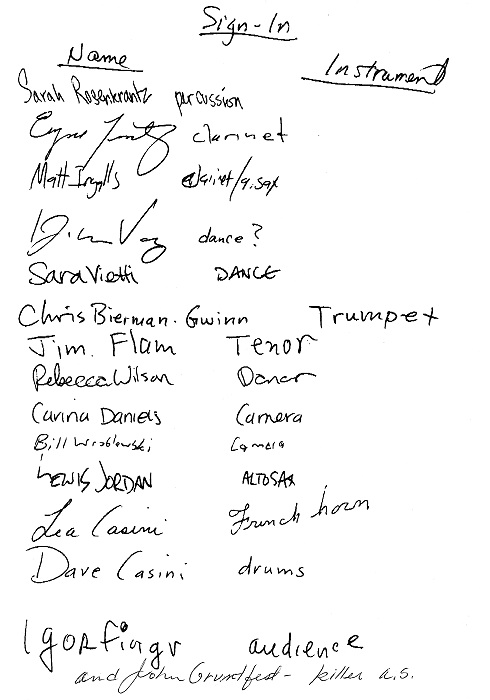 Sign-In
Name Instrument
Sarah Rosenkrantz percussion
clarinet
Matt Ingalls clarinet/a.sax
dance?
Sara Vietti DANCE
Chris Bierman-Gwinn Trumpet
Jim Flam Tenor
Rebecca Wilson Dancer
Carina Daniels Camera
Bill Wroblewski Camera
LEWIS JORDAN ALTO SAX
Lea Casini French horn
Dave Casini drums
audience
and John Gruntfest - killer a.s.